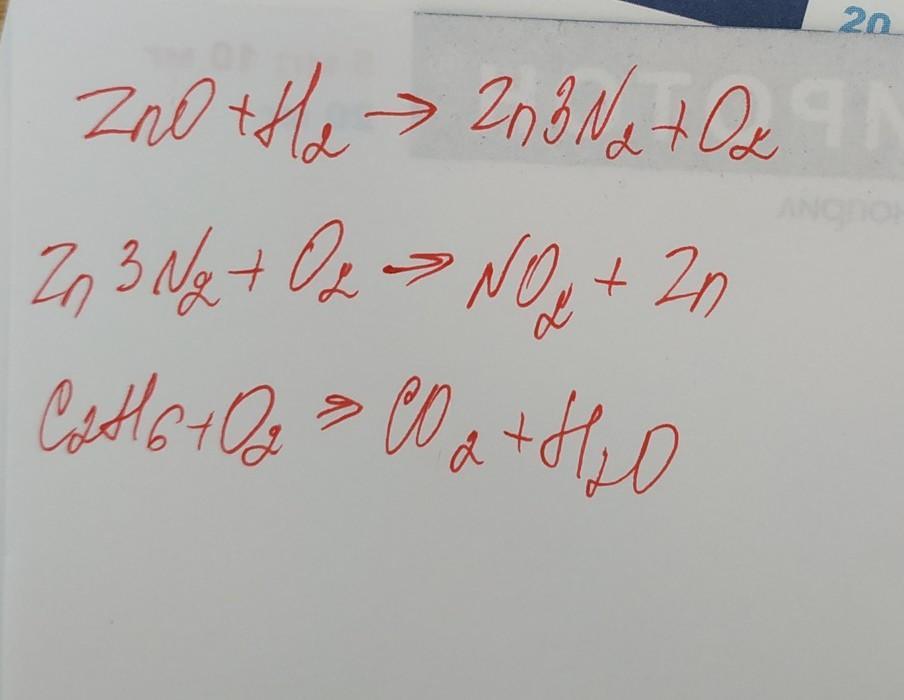 20
ZnO + H₂ → Zn3N₂ + O₂
Zn3N₂ + O₂ → NO₂ + Zn
C₂H₆ + O₂ ⇒ CO₂ + H₂O